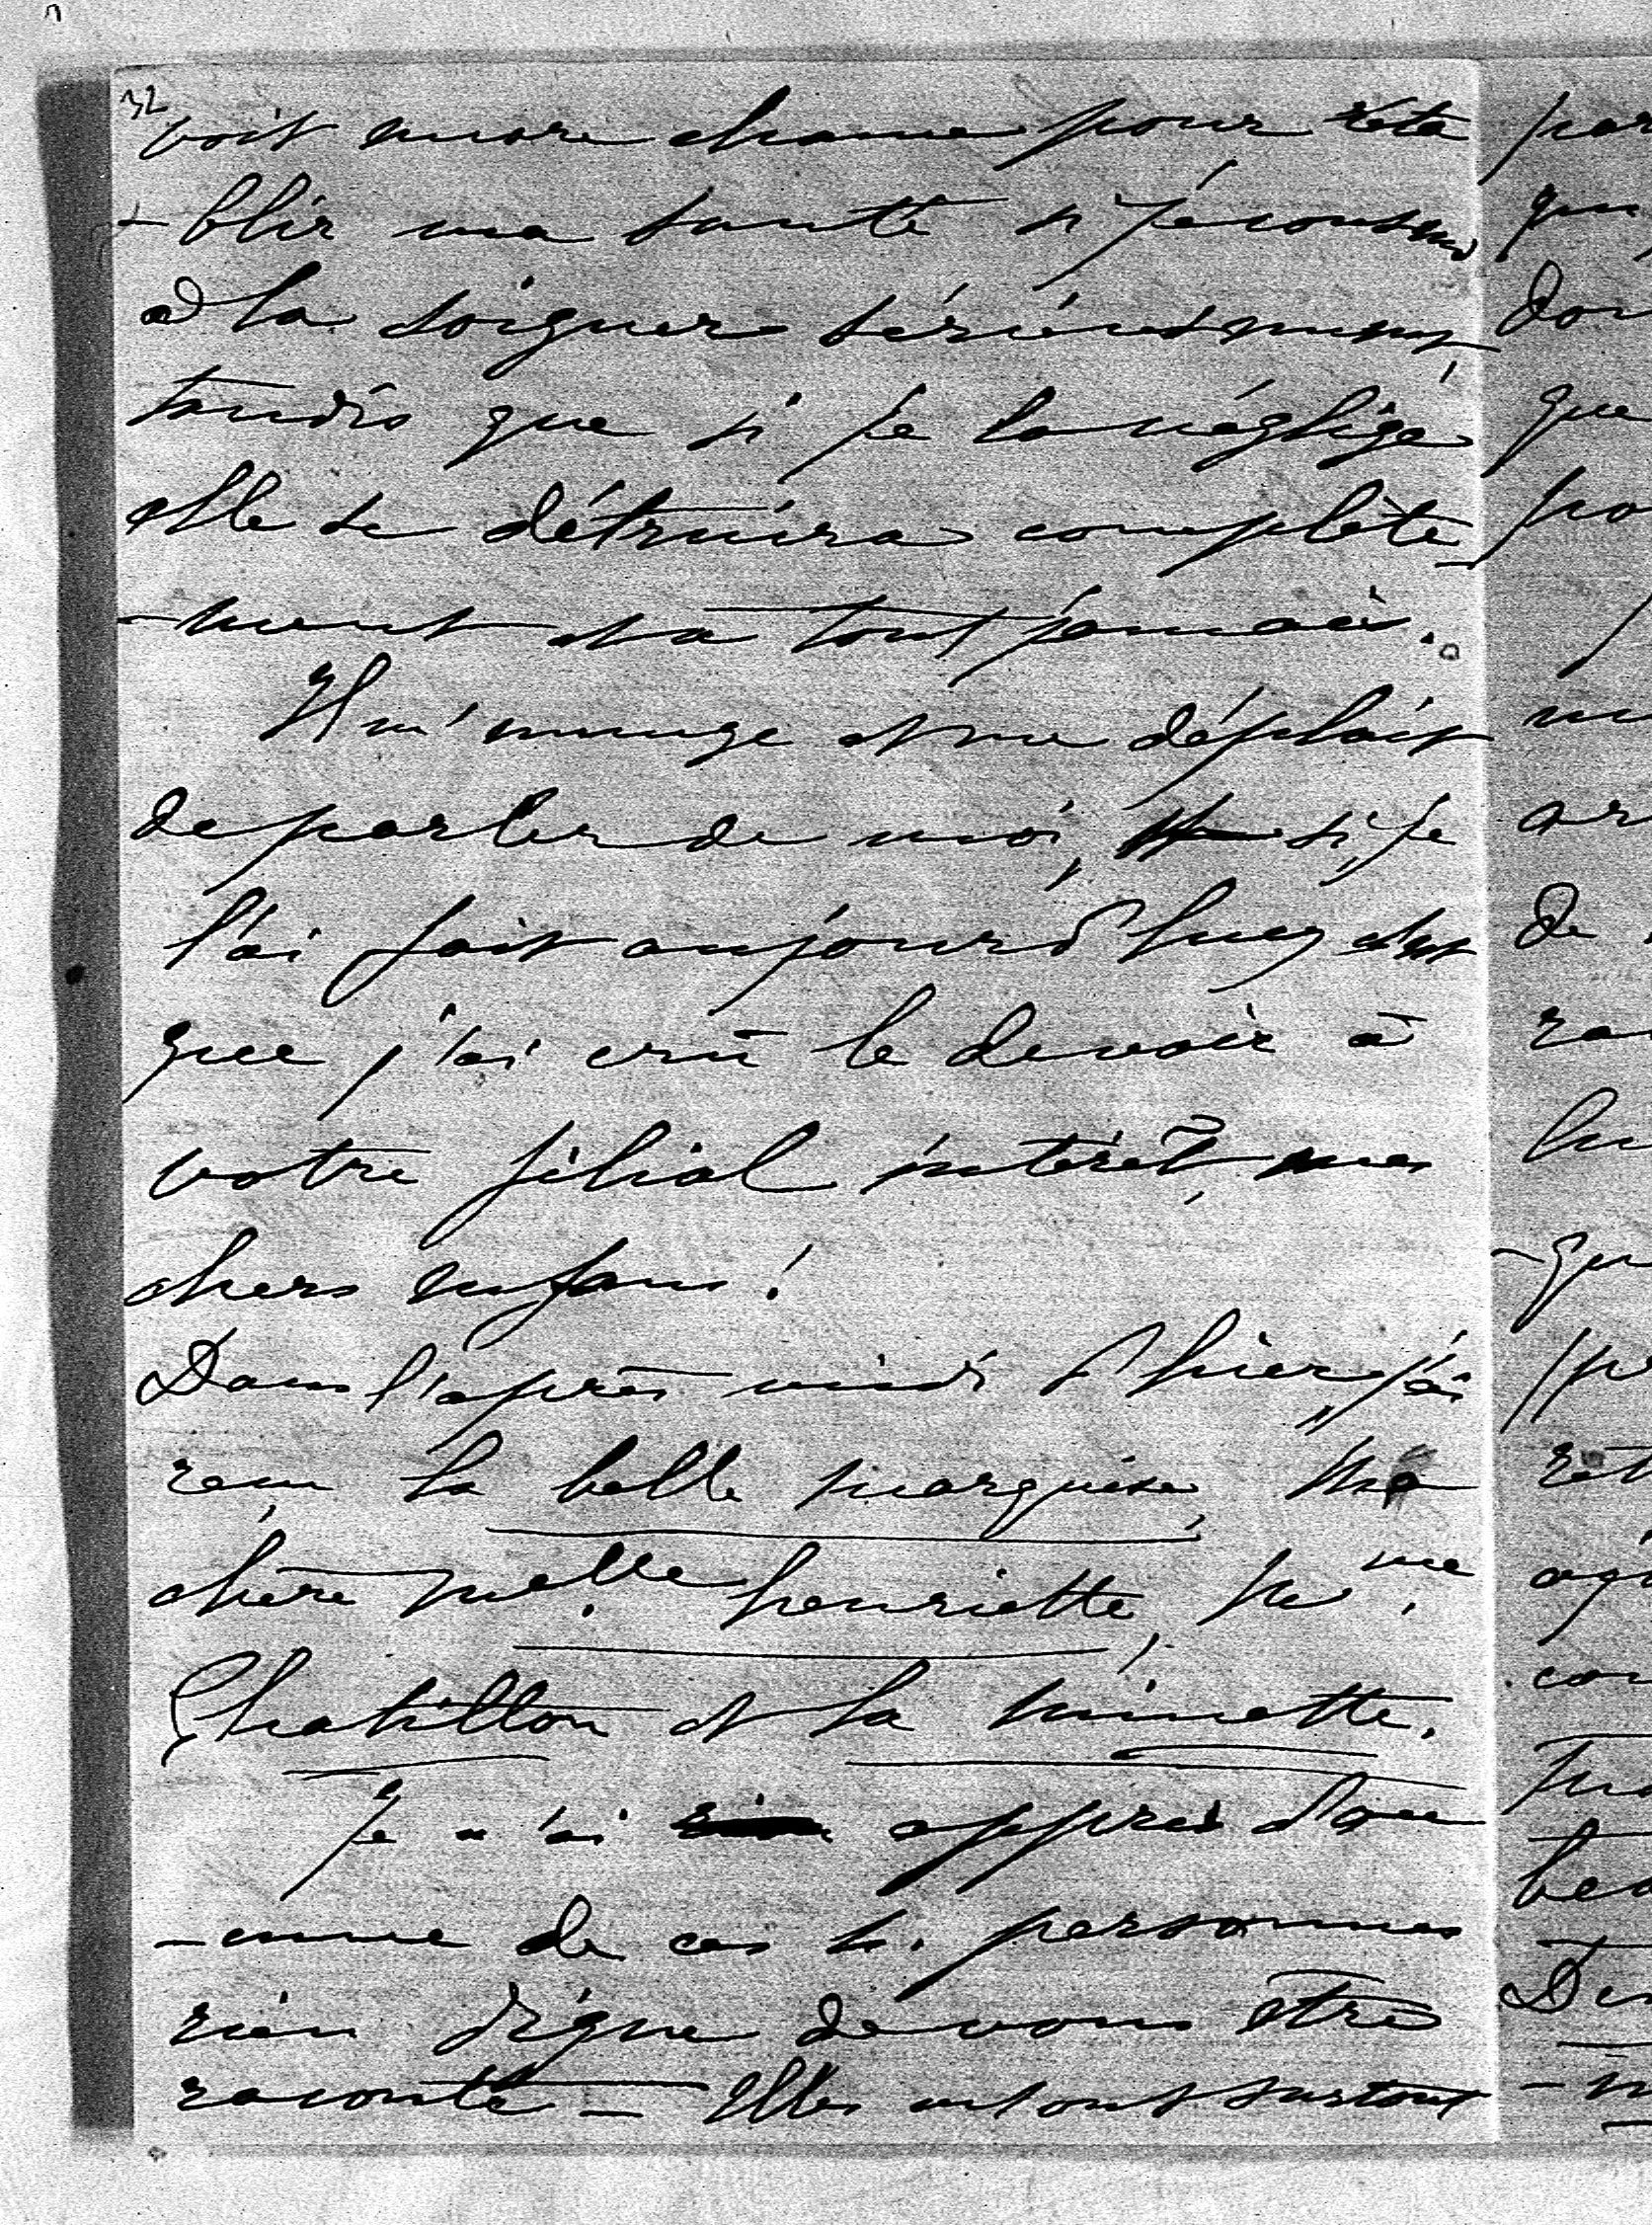 32
voit encore chance pour réta
-blir ma santé si je consens
à la soigner sérieusement,
tandis que si je la néglige
elle se détruira complète-
-ment et a tout jamais.
Il m'ennuye et me déplait
de parler de moi, si je
l'ai fait aujourd'huy c'est
que j'ai crû le devoir à
votre filial intérêt, mes
chers enfans!
Dans l'après midi d'hier, j'ai
reçu la belle marquise, Ma
chère Melle. henriette, Me.
Chatillon et la minette.
Je n'ai appris d'au
-cune de ces personnes
rien digne de vous être
raconté – Elles m'ont surtout